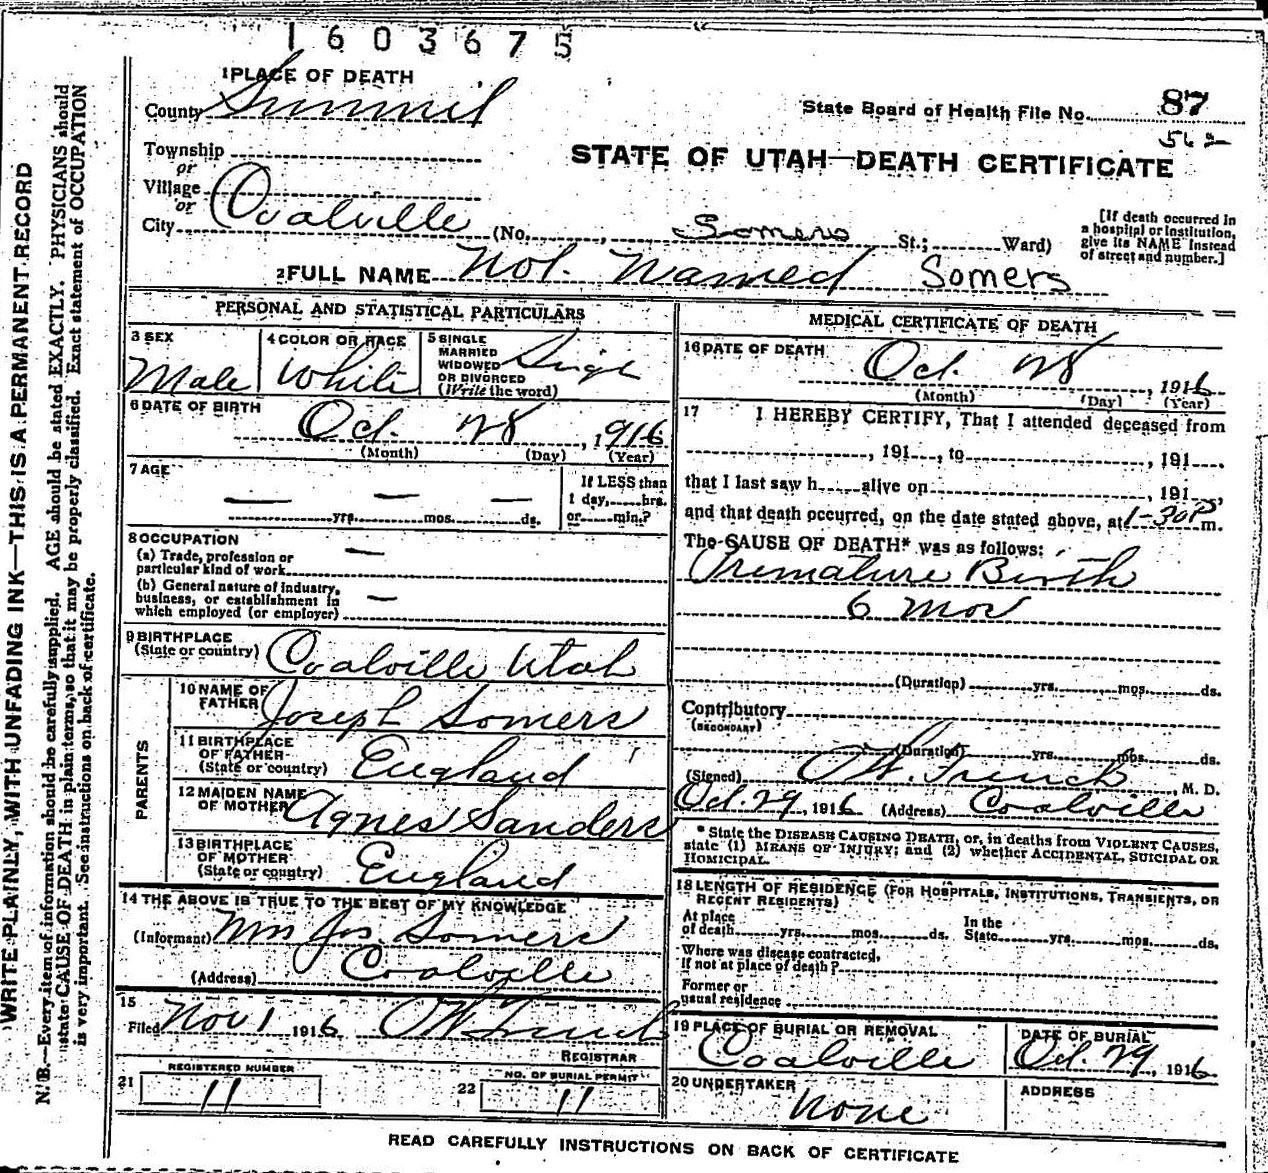 1603675
1 PLACE OF DEATH
County Summit
State Board of Health File No. 87
562
Township
or
Village
or
City Coalville (No. , Somers St.; Ward)
STATE OF UTAH—DEATH CERTIFICATE
[If death occurred in
a hospital or institution,
give its NAME instead
of street and number.]
2 FULL NAME Not Named Somers
PERSONAL AND STATISTICAL PARTICULARS
3 SEX
Male
4 COLOR OR RACE
White
5 SINGLE
MARRIED
WIDOWED
OR DIVORCED
(Write the word)
Singl
6 DATE OF BIRTH
Oct. 28, 1916
(Month) (Day) (Year)
7 AGE
— — —
yrs. mos. ds.
If LESS than
1 day, hrs.
or min.?
8 OCCUPATION
(a) Trade, profession or
particular kind of work —
(b) General nature of industry,
business, or establishment in
which employed (or employer) —
9 BIRTHPLACE
(State or country) Coalville Utah
PARENTS
10 NAME OF
FATHER Joseph Somers
11 BIRTHPLACE
OF FATHER
(State or country) England
12 MAIDEN NAME
OF MOTHER Agnes Sanders
13 BIRTHPLACE
OF MOTHER
(State or country) England
14 THE ABOVE IS TRUE TO THE BEST OF MY KNOWLEDGE
(Informant) Mrs Jos. Somers
(Address) Coalville
15
Filed Nov 1 1916 OW French
REGISTRAR
21 REGISTERED NUMBER
11
22 NO. OF BURIAL PERMIT
11
MEDICAL CERTIFICATE OF DEATH
16 DATE OF DEATH
Oct. 28, 1916
(Month) (Day) (Year)
17 I HEREBY CERTIFY, That I attended deceased from
, 191 , to , 191
that I last saw h alive on , 191 ,
and that death occurred, on the date stated above, at 1-30 P m.
The CAUSE OF DEATH* was as follows:
Premature Birth
6 mos
(Duration) yrs. mos. ds.
Contributory
(SECONDARY)
(Duration) yrs. mos. ds.
(Signed) OW. French, M. D.
Oct. 29, 1916 (Address) Coalville
* State the DISEASE CAUSING DEATH, or, in deaths from VIOLENT CAUSES,
state (1) MEANS OF INJURY; and (2) whether ACCIDENTAL, SUICIDAL OR
HOMICIDAL.
18 LENGTH OF RESIDENCE (FOR HOSPITALS, INSTITUTIONS, TRANSIENTS, OR
RECENT RESIDENTS)
At place
of death yrs. mos. ds.
In the
State yrs. mos. ds.
Where was disease contracted,
If not at place of death?
Former or
usual residence
19 PLACE OF BURIAL OR REMOVAL
Coalville
DATE OF BURIAL
Oct. 29, 1916
20 UNDERTAKER
None
ADDRESS
READ CAREFULLY INSTRUCTIONS ON BACK OF CERTIFICATE
WRITE PLAINLY, WITH UNFADING INK—THIS IS A PERMANENT RECORD
N. B.—Every item of information should be carefully supplied. AGE should be stated EXACTLY. PHYSICIANS should
state CAUSE OF DEATH in plain terms, so that it may be properly classified. Exact statement of OCCUPATION
is very important. See instructions on back of certificate.